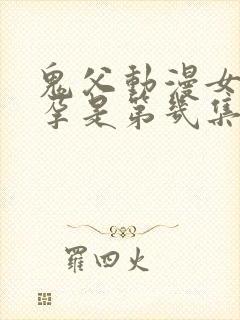 鬼父動漫女
孕是第幾集
羅四火